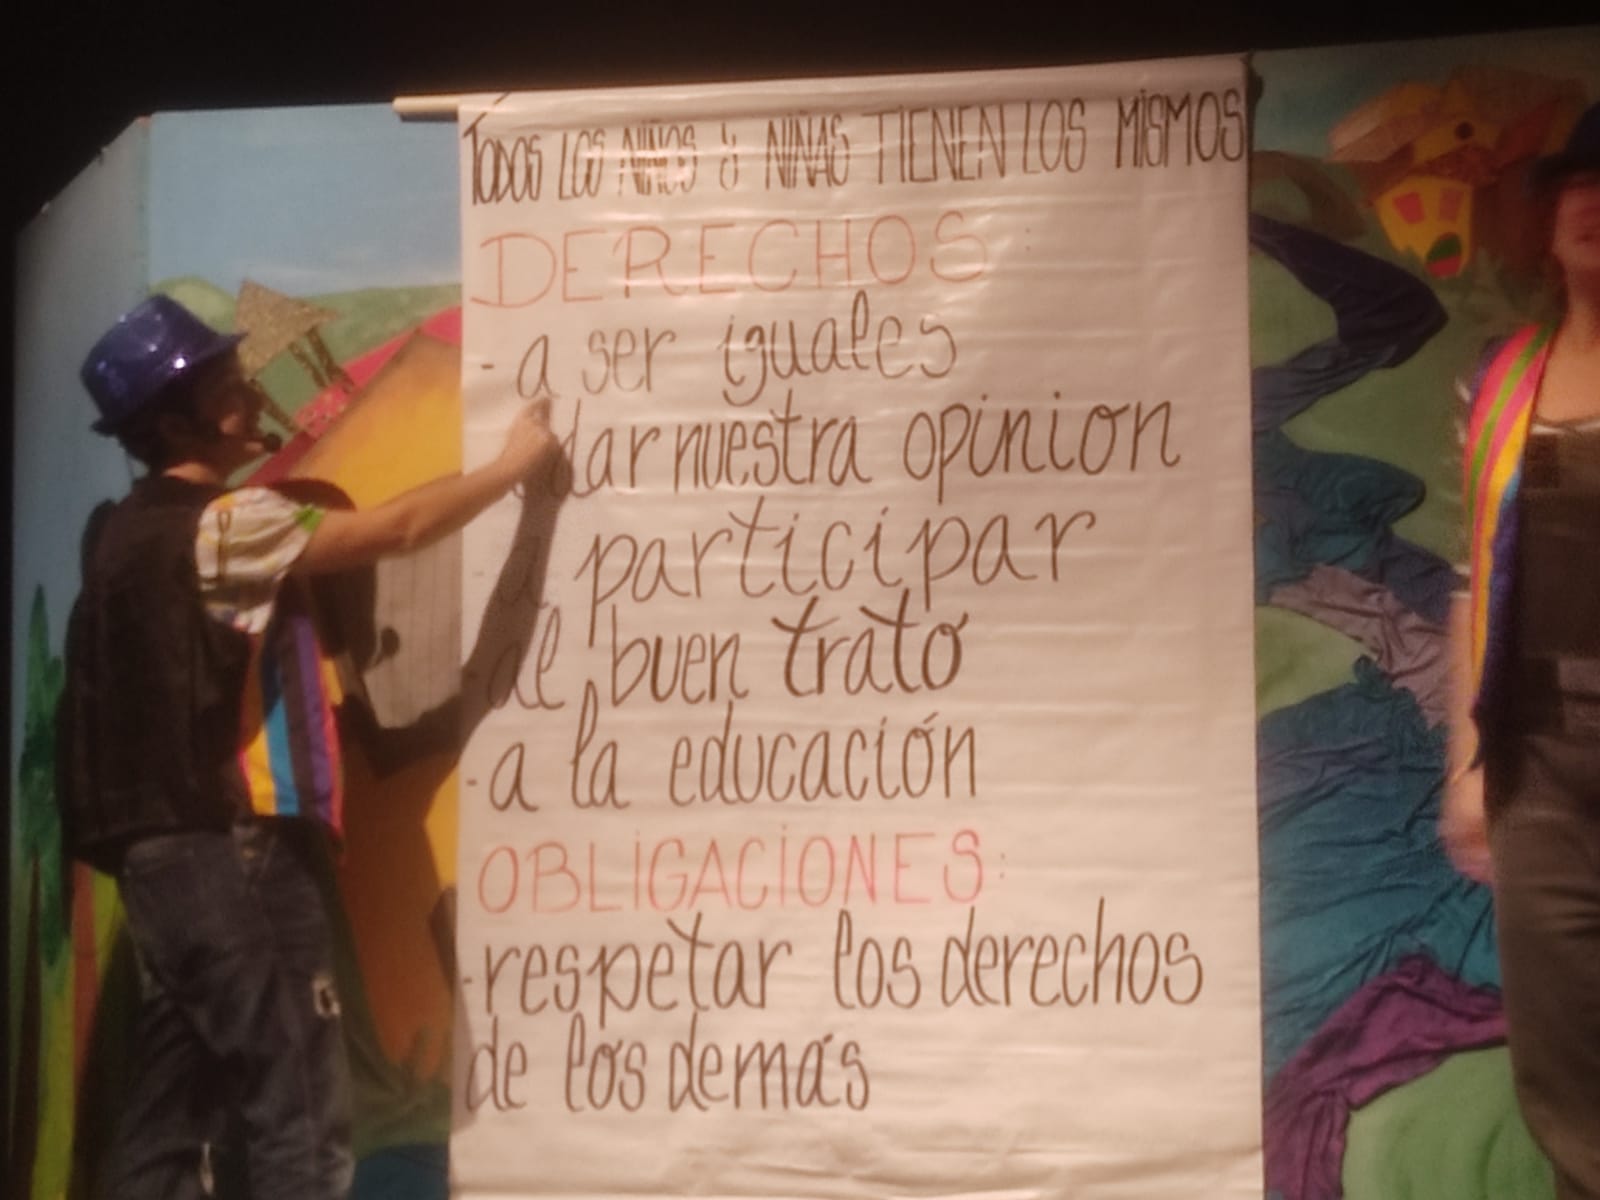 TODOS LOS NIÑOS y NIÑAS TIENEN LOS MISMOS
DERECHOS:
- a ser iguales
dar nuestra opinion
- a participar
- al buen trato
- a la educación
OBLIGACIONES:
- respetar los derechos
de los demás